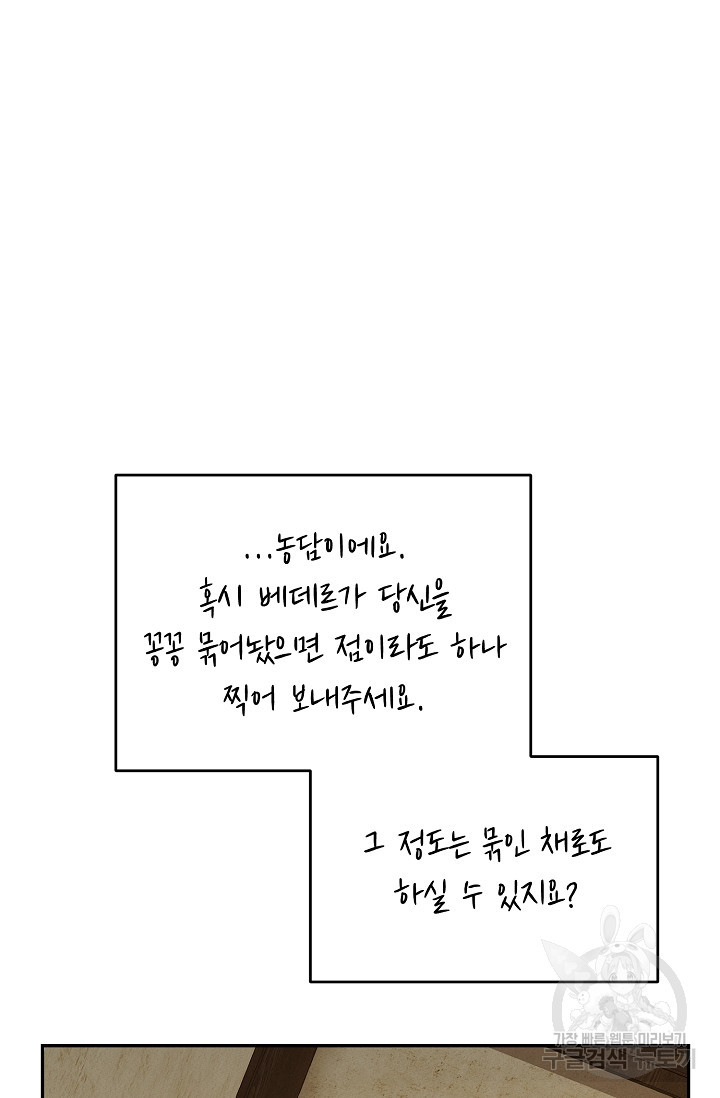 ...농담이에요.
혹시 베데르가 당신을
꽁꽁 묶어놨으면 점이라도 하나
찍어 보내주세요.
그 정도는 묶인 채로도
하실 수 있지요?
가장 빠른 웹툰 미리보기
구글검색 뉴토끼